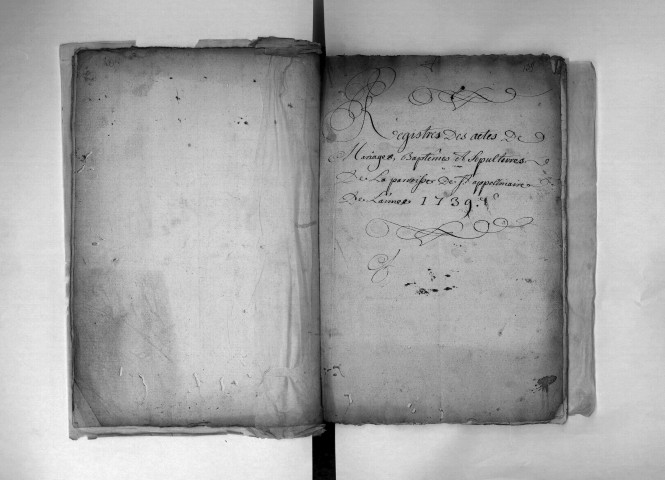 Registres Des actes De
Mariages, Baptemes et Sepultures
De La parroisse De St appollinaire
De Lannee 1739.